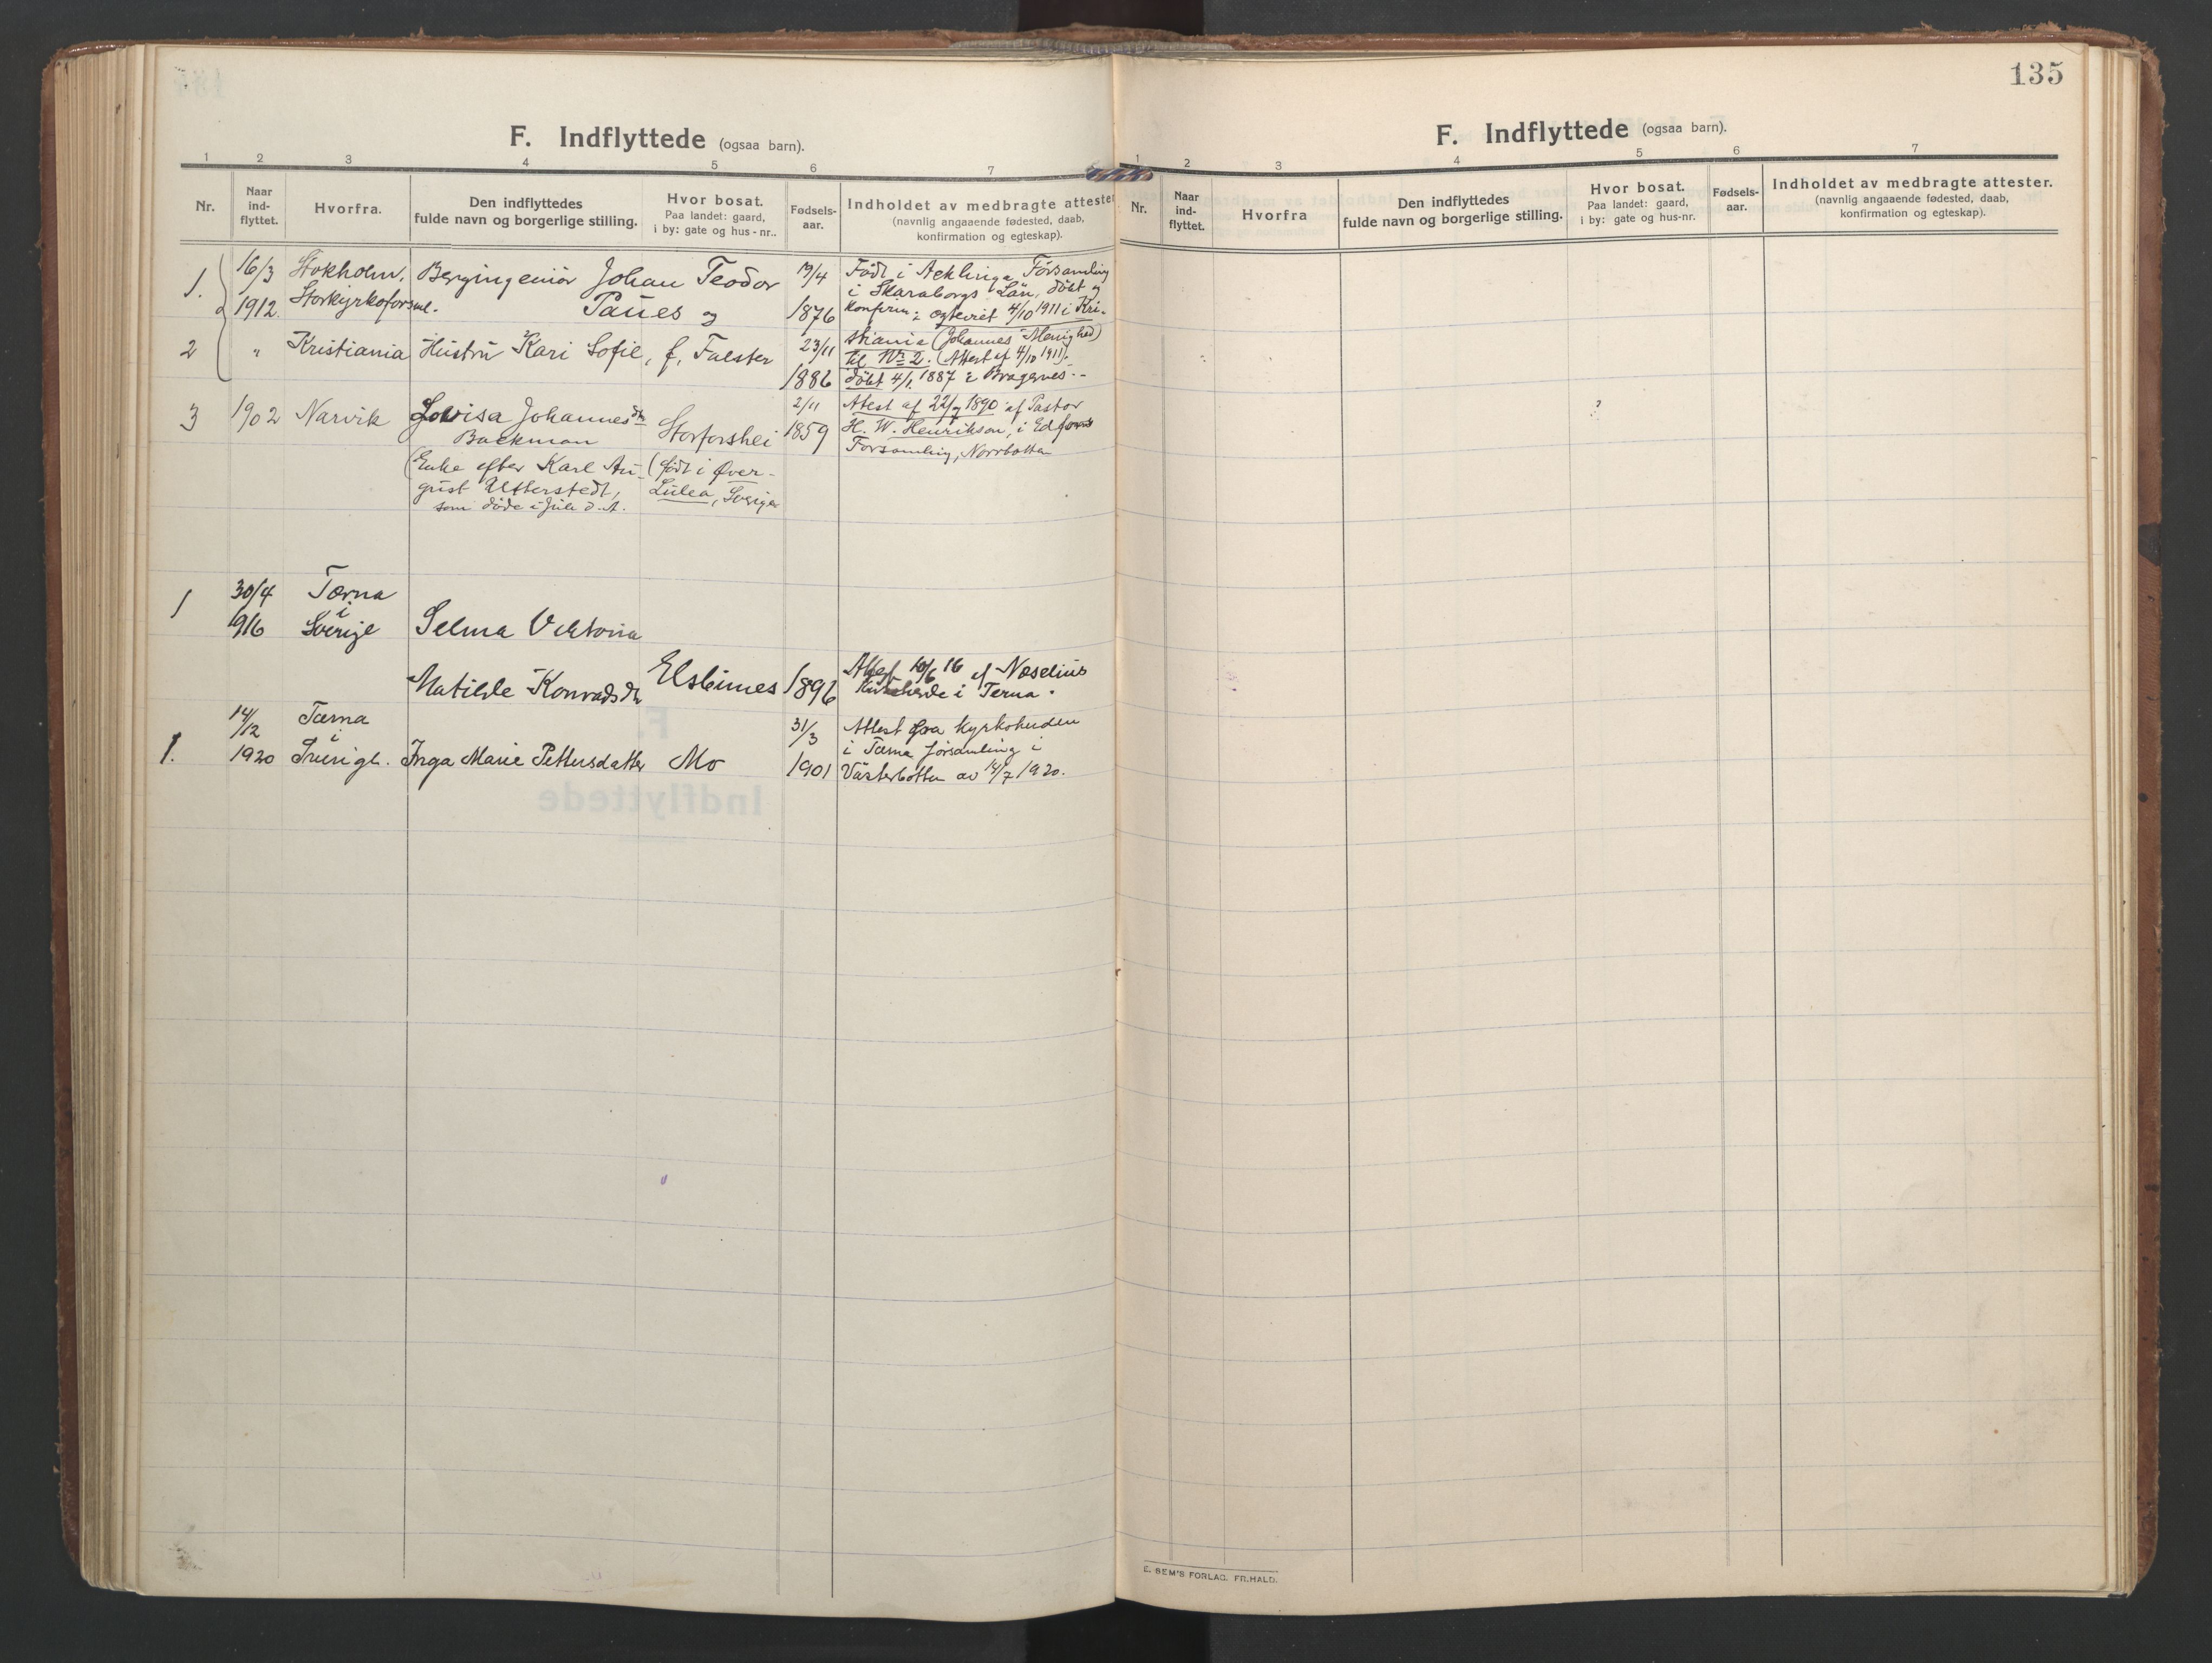 F. Indflyttede (ogsaa barn).
1 2 3 4 5 6 7
Nr.
Naar
ind-
flyttet.
Hvorfra.
Den indflyttedes
fulde navn og borgerlige stilling.
Hvor bosat.
Paa landet: gaard,
i by: gate og hus-nr..
Fødsels-
aar.
Indholdet av medbragte attester
(navnlig angaaende fødested, daab,
konfirmation og egteskap).
1.
16/3
1912
Stokholm,
Storkyrkoforsml.
Bergingeniör Johan Teodor
Paues og
19/4
1876
Född i Acklinga Församling
i Skaraborgs Län, döbt og
Konfirm; egteviet 4/10 1911 i Kri-
stiania (Johannes Menighed)
til No 2. (Attest af 4/10 1911).
2
"
Kristiania
Hustru Kari Sofie, f. Falster
23/11
1886
döbt 4/1 1887 i Bragernes.-
3
1902
Narvik
Lovisa Johannesdtr
Backman
(Enke efter Karl Au-
gust Utterstedt,
som döde i Juli d. A.
Storforshei
(födt i Över-
Lulea, Sverige
2/11
1859
Attest af 22/7 1890 af Pastor
H. W. Henrikson, i Edefors
Forsamling, Norrbotten
1
30/4
1916
Tærna
i
Sverige
Selma Viktoria
Matilde Konradsdtr
Elsteines
1896
Attest 10/6 16 af Næselius
Kirkeherde i Terna.
1.
14/12
1920
Tærna
i
Sverige.
Inga Marie Pettersdatter
Mo
31/3
1901
Attest fra Kyrkoherden
i Tærna församling i
Västerbotten av 14/7 1920.
135
F. Indflyttede (ogsaa barn).
1 2 3 4 5 6 7
Nr.
Naar
ind-
flyttet.
Hvorfra
Den indflyttedes
fulde navn og borgerlige stilling.
Hvor bosat.
Paa landet: gaard,
i by: gate og hus-nr.
Fødsels-
aar.
Indholdet av medbragte attester.
(navnlig angaaende fødested, daab,
konfirmation og egteskap).
E. SEM'S FORLAG. FR.HALD.